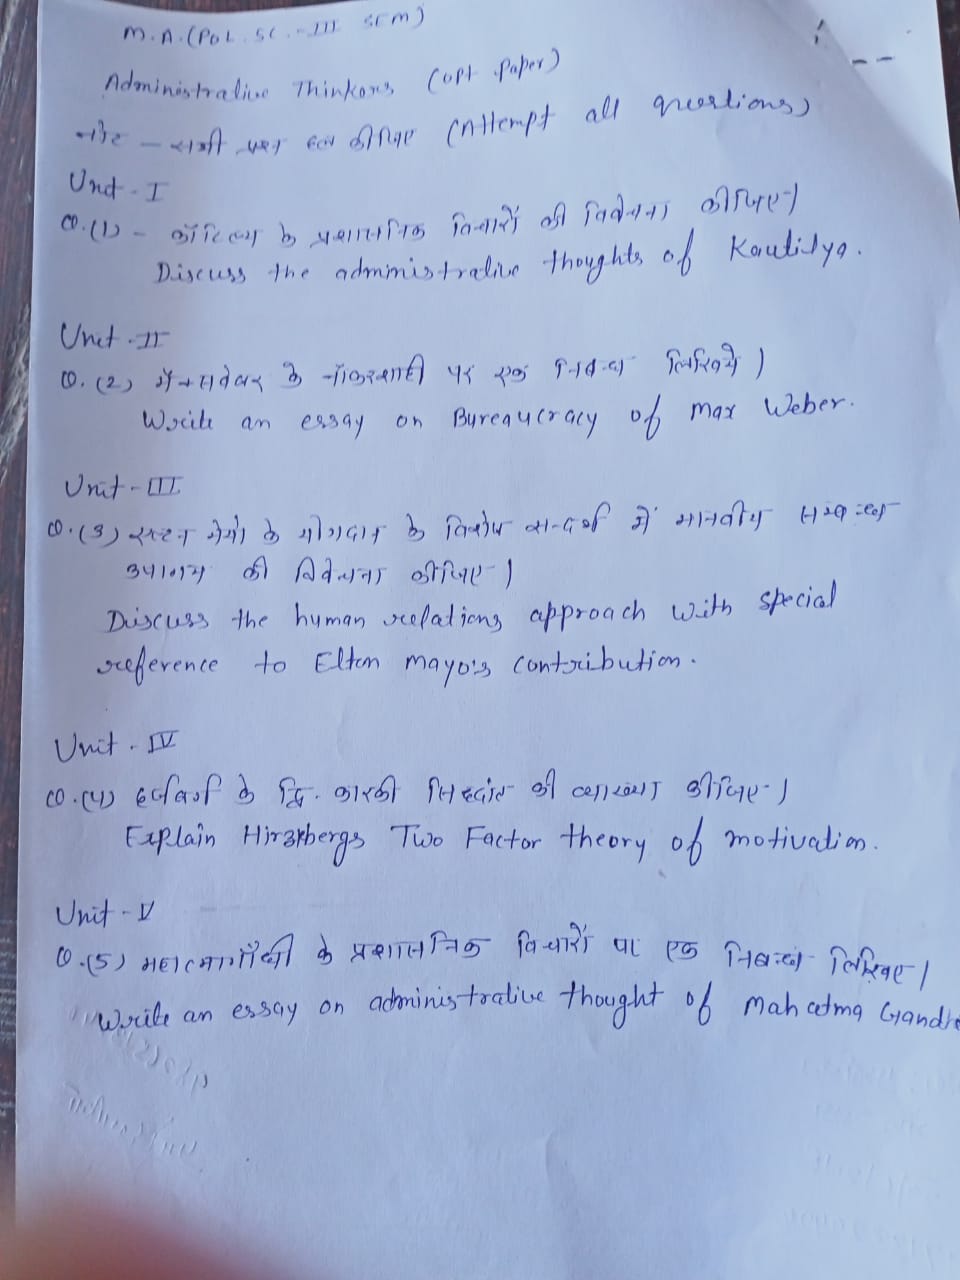 M.A.(POL.SC.-III SEM)
Administrative Thinkers (opt Paper)
नोट - सभी प्रश्न हल कीजिए (Attempt all questions)
Unit - I
Q.(1) - कौटिल्य के प्रशासनिक विचारों की विवेचना कीजिए।
Discuss the administrative thoughts of Kautilya.
Unit - II
Q.(2) मैक्सवेबर के नौकरशाही पर एक निबन्ध लिखिये।
Write an essay on Bureaucracy of Max Weber.
Unit - III
Q.(3) एल्टन मेयो के योगदान के विशेष सन्दर्भ में मानवीय सम्बन्ध
उपागम की विवेचना कीजिए।
Discuss the human relations approach with special
reference to Elton mayo's contribution.
Unit - IV
Q.(4) हर्जबर्ग के द्वि-कारकी सिद्धांत की व्याख्या कीजिए।
Explain Hirzkbergs Two Factor theory of motivation.
Unit - V
Q.(5) महात्मागाँधी के प्रशासनिक विचारों पर एक निबन्ध लिखिए।
Write an essay on administrative thought of Mahatma Gandhi